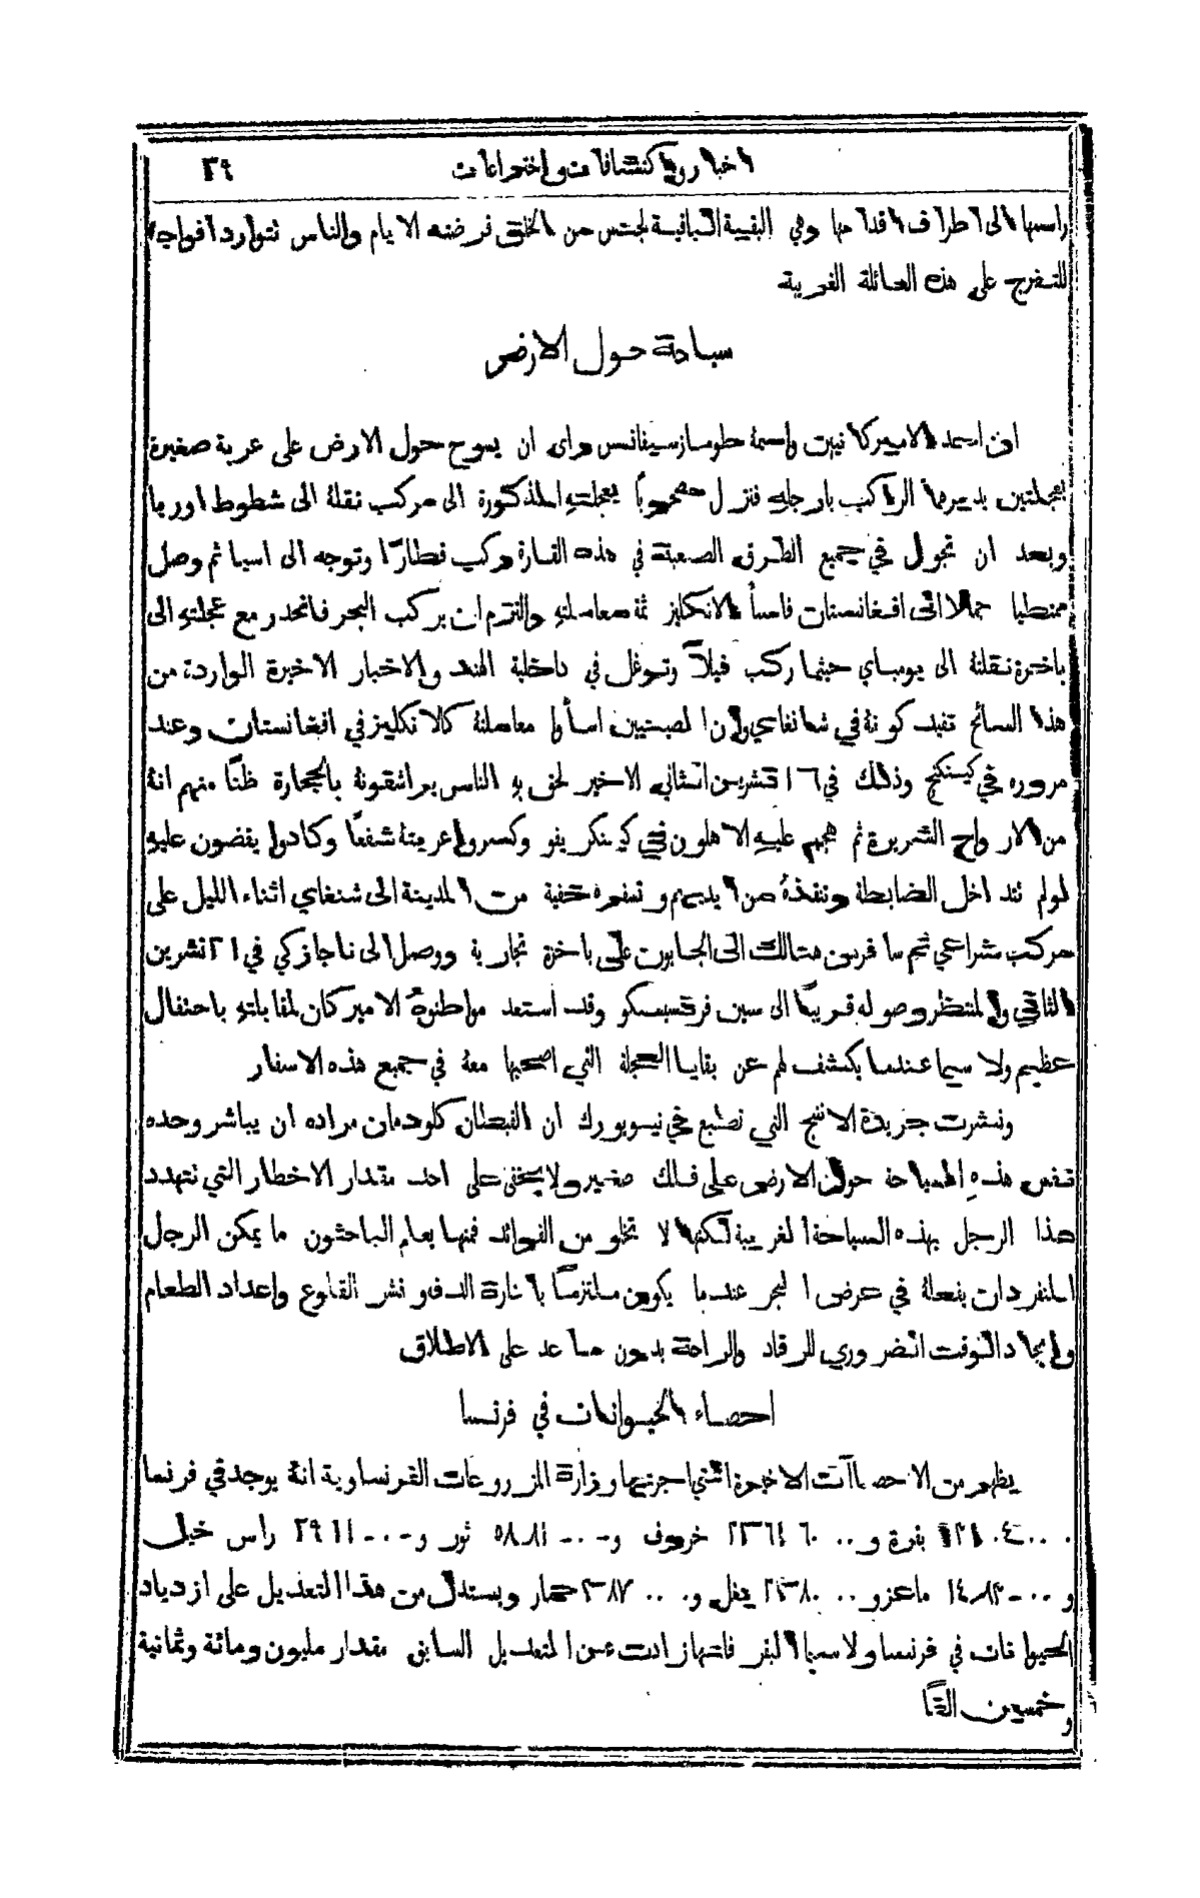 اخبار واكتشافات واختراعات
٣٩
راسها الى اطراف اقدامها وهي البقية الباقية لجنس من الخلق قرضته الايام والناس تتوارد افواجا
للتفرج على هذه العائلة الغريبة
سياحة حول الارض
ان احد الاميركانيين واسمه طوماز سيفانس راى ان يسوح حول الارض على عربة صغيرة
بعجلتين يديرها الراكب بارجله فنزل مصحوبًا بعجلته المذكورة الى مركب نقله الى شطوط اوربا
وبعد ان تجول في جميع الطرق الصعبة في هذه القارة ركب قطارًا وتوجه الى اسيا ثم وصل
ممتطيا جملا الى افغانستان فاسأ الانكليز ثمة معاملته والتزم ان يركب البحر فانحدر مع عجلته الى
باخرة نقلته الى بومباي حيثما ركب فيلاً وتوغل في داخلية الهند والاخبار الاخيرة الواردة من
هذا السائح تفيد كونه في شانغاي وان الصينيين اسأوا معاملته كالانكليز في افغانستان وعند
مروره في كينكنج وذلك في ١٦ تشرين الثاني الاخير لحق به الناس يراشقونه بالحجارة ظنًا منهم انه
من الارواح الشريرة ثم هجم عليه الاهلون في كينكريفو وكسروا عربته شغفًا وكادوا يقضون عليه
لو لم تتداخل الضابطة وتنقذه من ايديهم وتسفره خفية من المدينة الى شنغاي اثناء الليل على
مركب شراعي ثم سافر من هنالك الى الجابون على باخرة تجارية ووصل الى ناجازكي في ٢١ تشرين
الثاني والمنتظر وصوله قريبًا الى سين فرنسيسكو وقد استعد مواطنوه الاميركان لمقابلته باحتفال
عظيم ولا سيما عندما يكشف لهم عن بقايا العجلة التي اصحبها معه في جميع هذه الاسفار
ونشرت جريدة الاتيج التي تطبع في نيويورك ان القبطان كلودمان مراده ان يباشر وحده
نفس هذه السياحة حول الارض على فلك صغير ولا يخفى على احد مقدار الاخطار التي تتهدد
هذا الرجل بهذه السياحة الغريبة لكنها لا تخلو من الفوائد فمنها يعلم الباحثون ما يمكن الرجل
المنفرد ان يفعله في عرض البحر عندما يكون ملتزمًا بانارة الدفة ونشر القلوع واعداد الطعام
وايجاد الوقت الضروري للرقاد والراحة بدون مساعد على الاطلاق
احصاء الحيوانات في فرنسا
يظهر من الاحصاآت الاخيرة التي اجرتها وزارة المزروعات الفرنساوية انه يوجد في فرنسا
بقرة و خروف و ثور و راس خيل
و ماعز و بغل و حمار ويستدل من هذا التعديل على ازدياد
الحيوانات في فرنسا ولا سيما البقر فانها زادت عن التعديل السابق مقدار مليون ومائة وثمانية
وخمسين الفًا